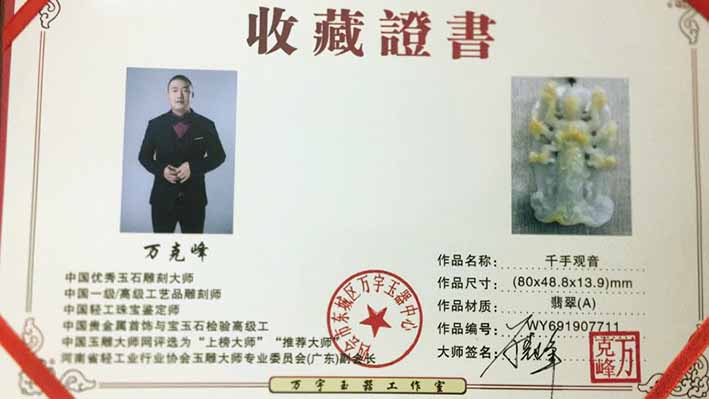 收藏證書
万克峰
中国优秀玉石雕刻大师
中国一级/高级工艺品雕刻师
中国轻工珠宝鉴定师
中国贵金属首饰与宝玉石检验高级工
中国玉雕大师网评选为“上榜大师”“推荐大师”
河南省轻工业行业协会玉雕大师专业委员会(广东)副会长
作品名称： 千手观音
作品尺寸： (80x48.8x13.9)mm
作品材质： 翡翠(A)
作品编号： WY691907711
大师签名：
万克峰
四会市东城区万宇玉器中心
万宇玉器工作室